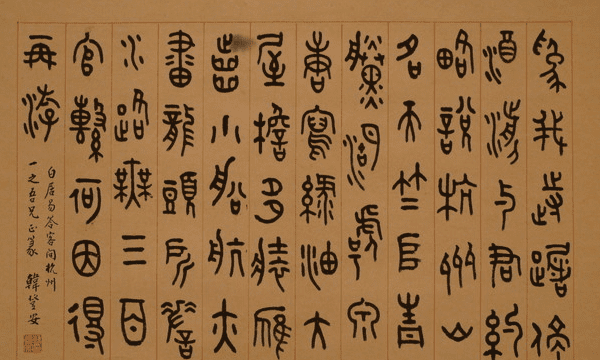 為我踟躕停
酒盞与君約
略說杭州山
名天竺𠂤青
黱湖號泉
唐寫綠油大
屋檐多裝雁
齒小船航亦
畫龍頭所嗟
水路無三百
官繫何因得
再游
白居易答客問杭州
一之吾兄正篆 韓登安